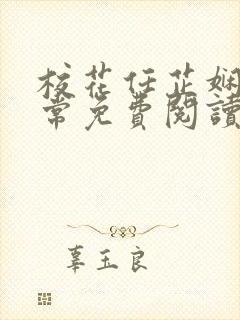 校花任芷娴
常免费阅读
辜玉良